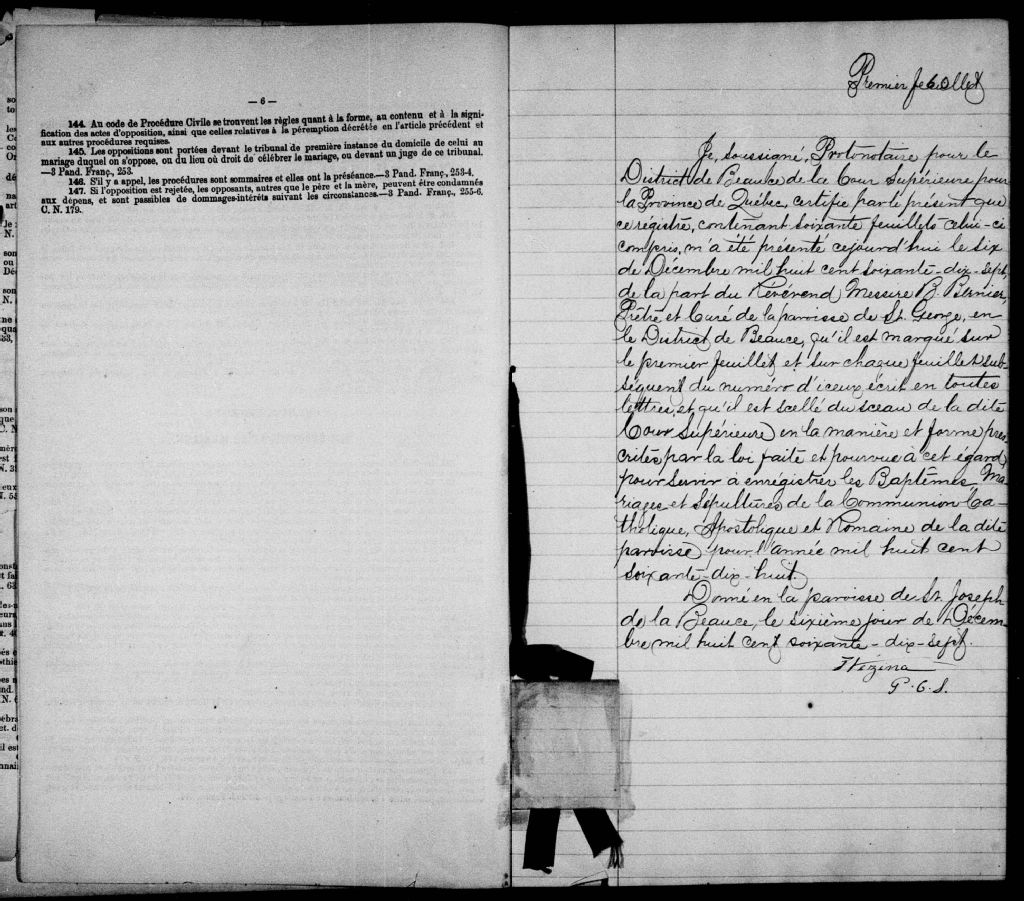 — 6 —
144. Au code de Procédure Civile se trouvent les règles quant à la forme, au contenu et à la signi-
fication des actes d'opposition, ainsi que celles relatives à la péremption décrétée en l'article précédent et
aux autres procédures requises.
145. Les oppositions sont portées devant le tribunal de première instance du domicile de celui au
mariage duquel on s'oppose, ou du lieu où droit de célébrer le mariage, ou devant un juge de ce tribunal.
—3 Pand. Franç., 253.
146. S'il y a appel, les procédures sont sommaires et elles ont la préséance.—3 Pand. Franç., 253-4.
147. Si l'opposition est rejetée, les opposants, autres que le père et la mère, peuvent être condamnés
aux dépens, et sont passibles de dommages-intérêts suivant les circonstances.—3 Pand. Franç., 255-6.
C. N. 179.
Premier feuillet
Je, soussigné, Protonotaire pour le
District de Beauce de la Cour Supérieure pour
la Province de Québec, certifie par le présent que
ce régistre, contenant soixante feuillets celui-ci
compris, m'a été présenté cejourd'hui le six
de Décembre mil huit cent soixante-dix-sept,
de la part du Révérend Messire B. Bernier,
Prêtre et Curé de la paroisse de St. George, en
le District de Beauce, qu'il est marqué sur
le premier feuillet et sur chaque feuillet sub-
séquent du numéro d'iceux écrit en toutes
lettres, et qu'il est scellé du sceau de la dite
Cour Supérieure en la manière et forme pres-
crites par la loi faite et pourvue à cet égard,
pour servir à enrégistrer les Baptêmes, Ma-
riages et Sépultures de la Communion Ca-
tholique, Apostolique et Romaine de la dite
paroisse pour l'année mil huit cent
soixante-dix-huit.
Donné en la paroisse de St. Joseph
de la Beauce, le sixième jour de Décem-
bre mil huit cent soixante-dix-sept.
Vézina
P. C. S.